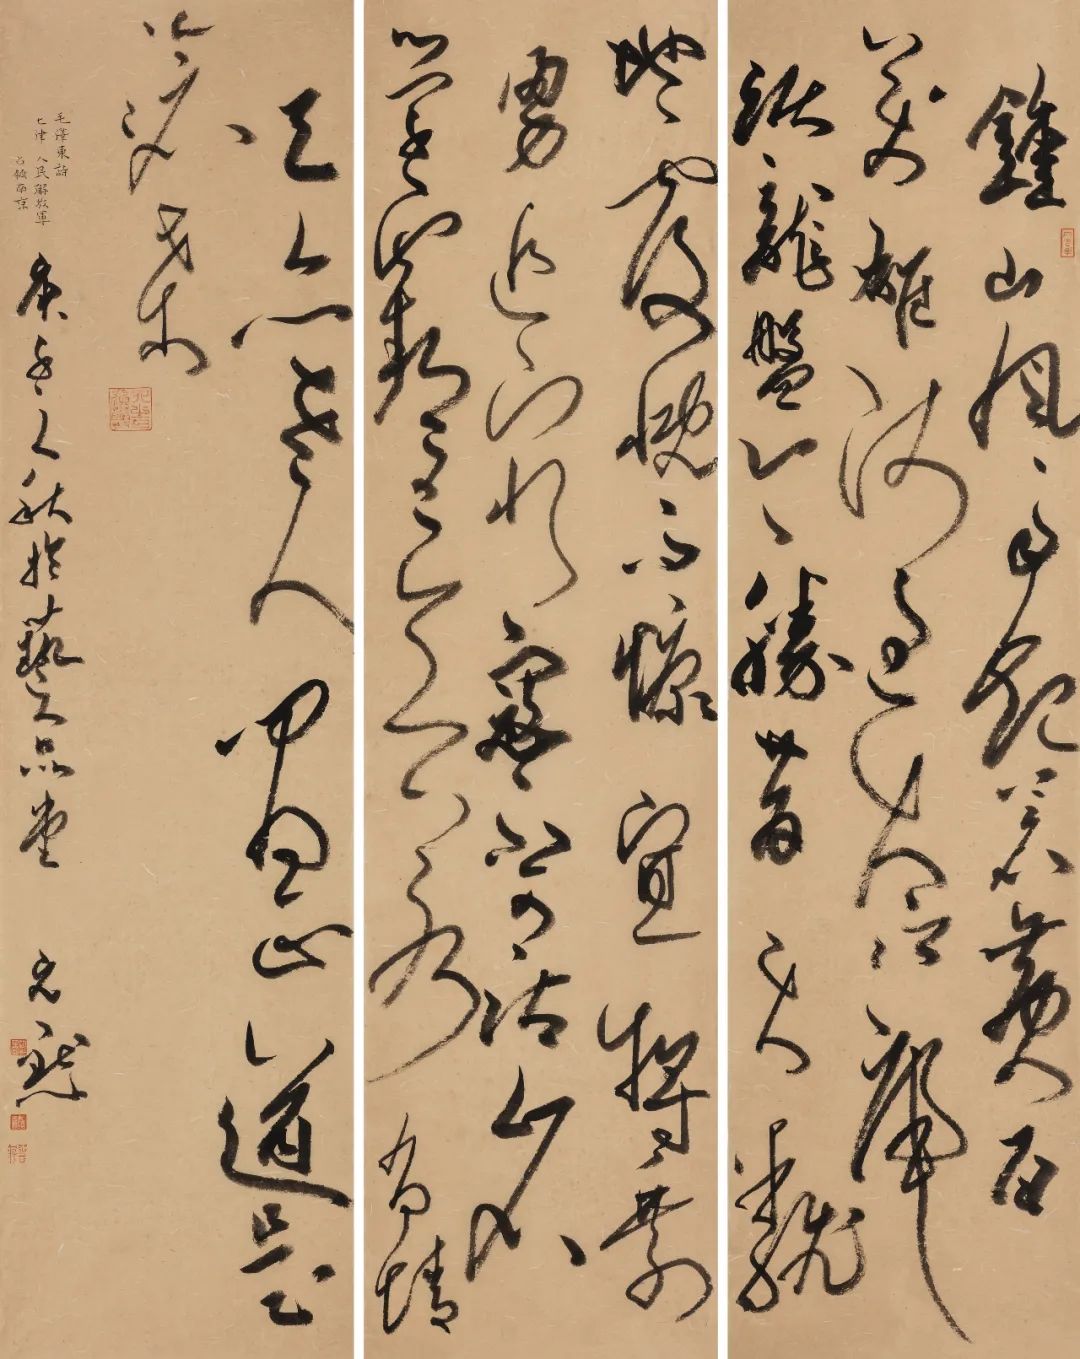 鍾山風雨起蒼黃百
萬雄師過大江虎
踞龍盤今勝昔天翻
地覆慨而慷宜將剩
勇追窮寇不可沽名
學霸王天若有情
天亦老人間正道是
滄桑
毛澤東詩
七律 人民解放軍
占領南京
庚子之秋於藝品堂